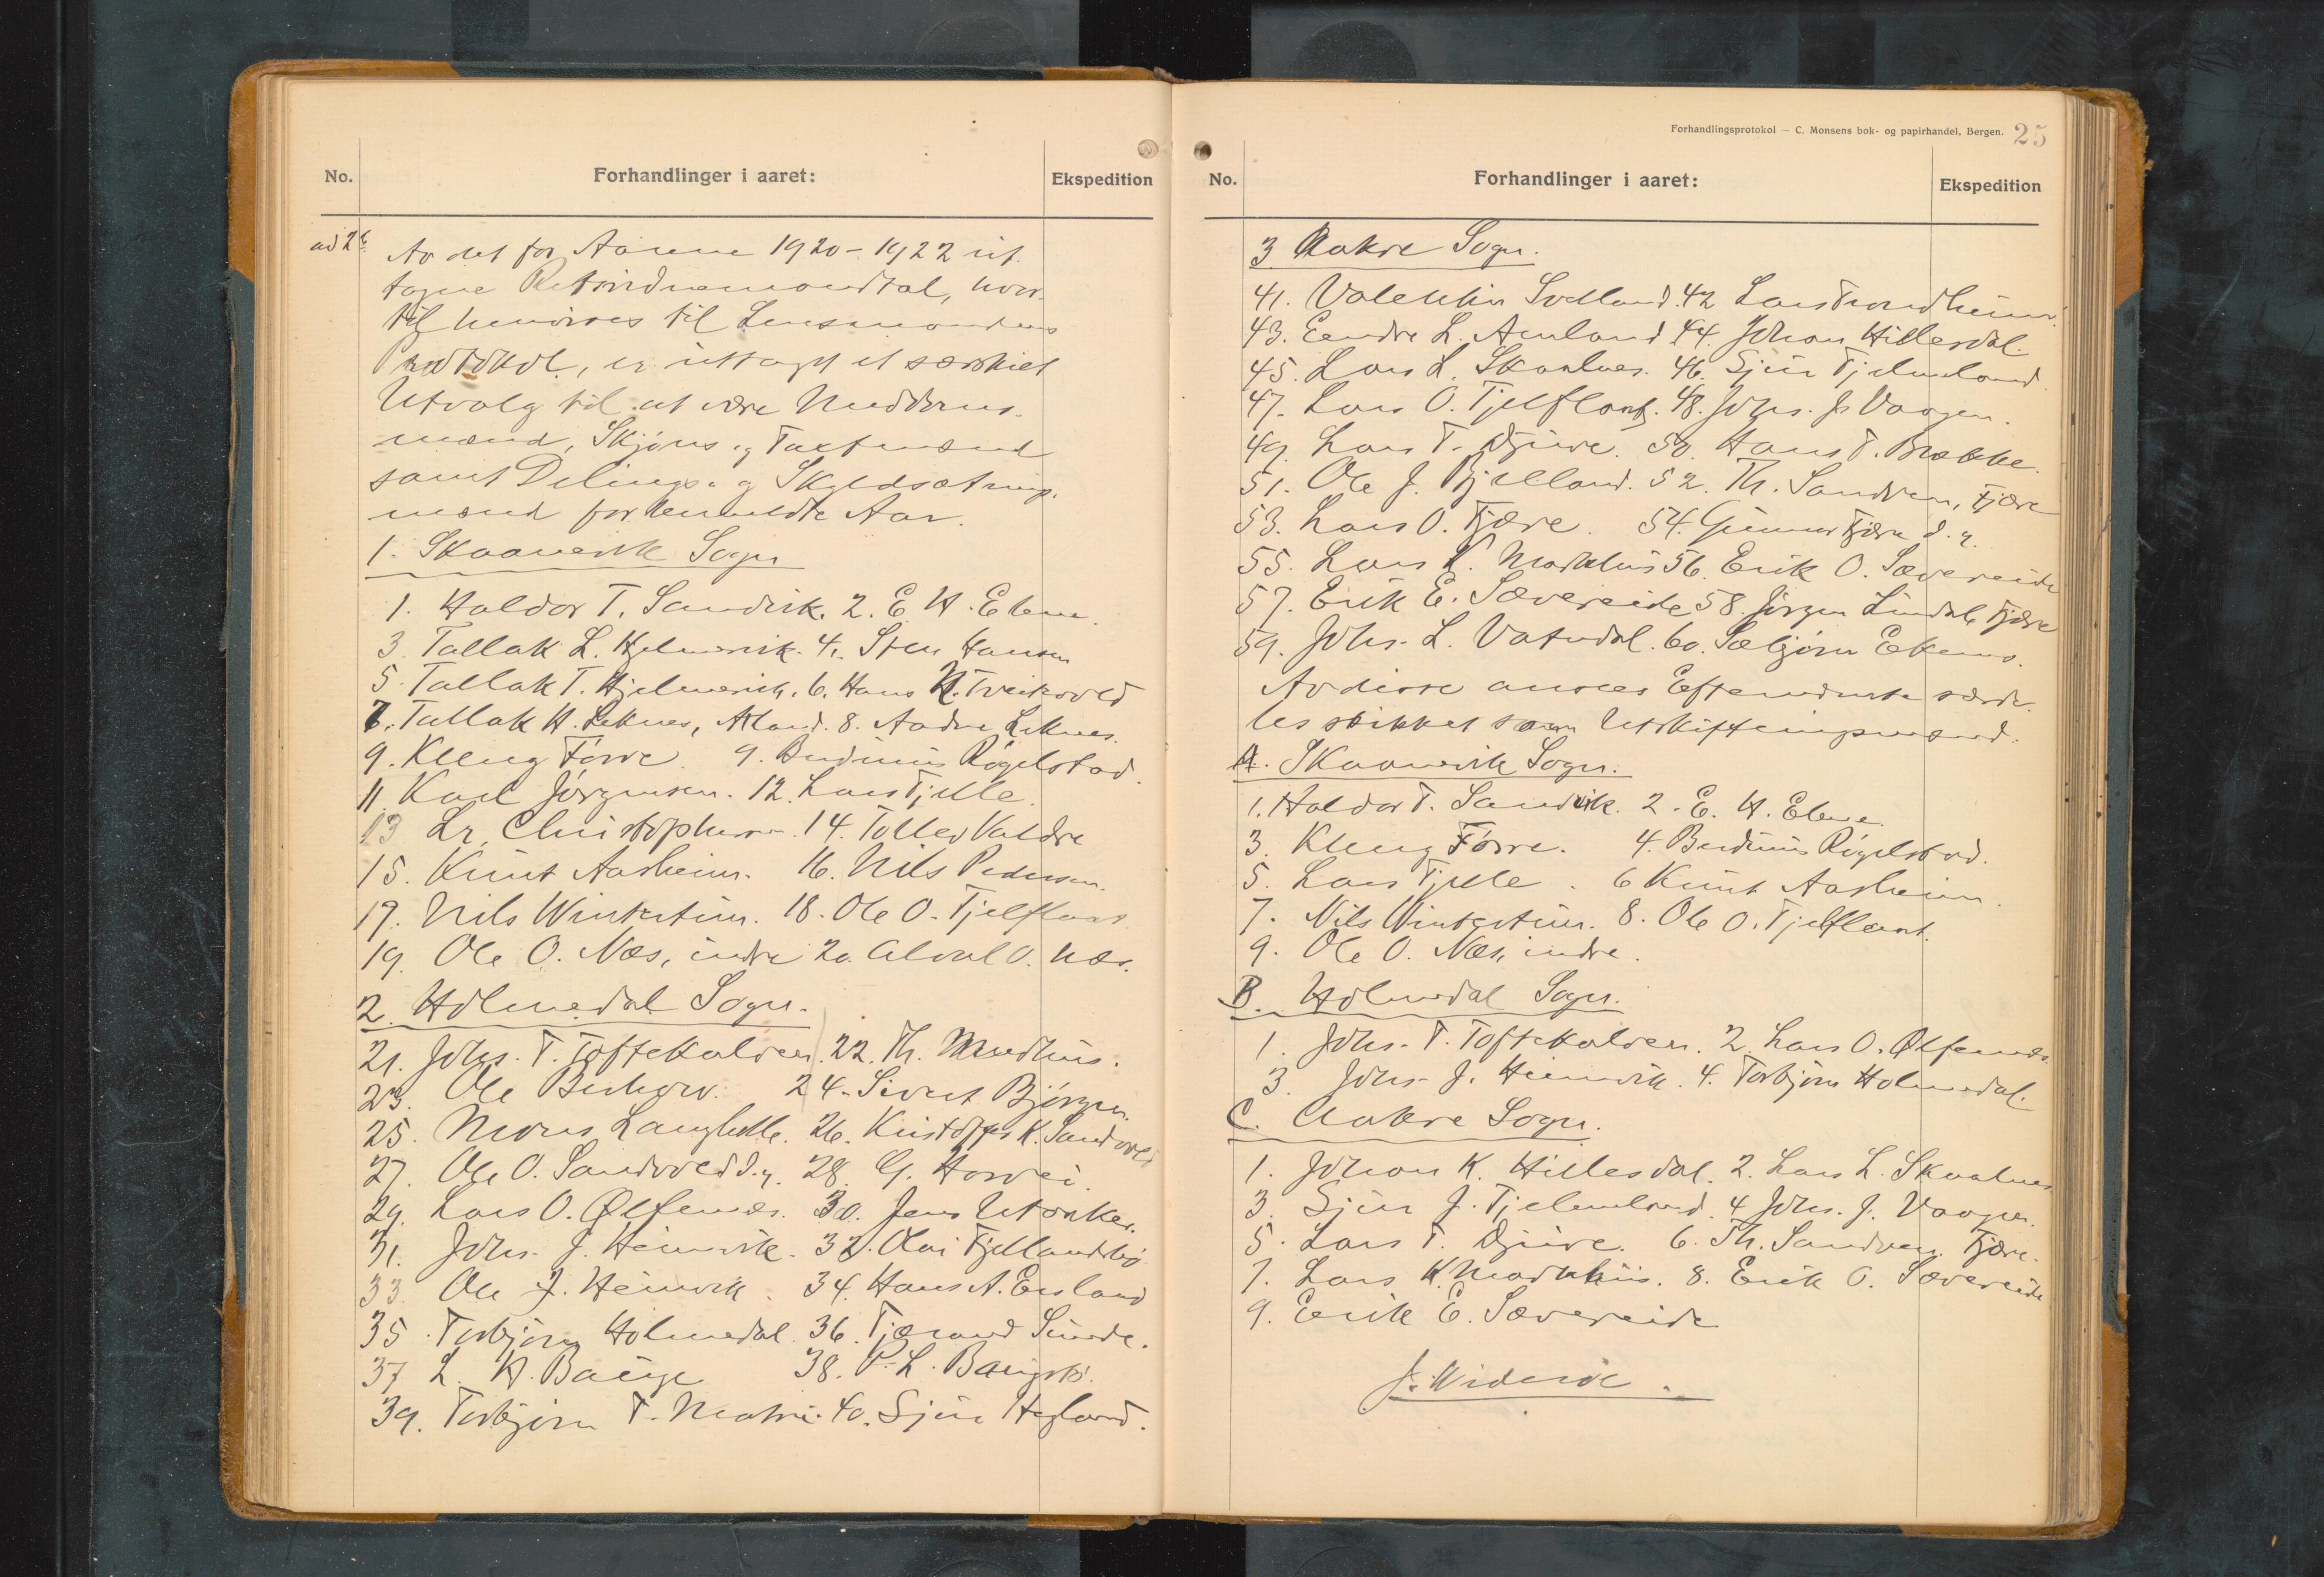 No.
Forhandlinger i aaret:
Ekspedition
ad 2b
Av det for Aarene 1920-1922 ut-
tagne Retsvidnemandtal, hvor-
til henvises til Lensmandens
Protokol, er uttagt et særskilt
Utvalg til at være Meddoms-
mænd, Skjøns og Taxtmænd
samt Delings og Skyldsætnings-
mænd for henmeldte Aar.
1. Skaanevik Sogn
1. Haldor T. Sandvik. 2. E. H. Ebne.
3. Tallak L. Hjelmevik. 4. Sten Hansen
5. Tallak T. Hjelmevik. 6. Hans N. Tveitevold
7. Tallak H. Leknes, Arland. 8. Aadne Leknes.
9. Kleng Førre. 9. Berdinius Røgelstad.
11. Karl Jørgensen. 12. Lars Tjelle.
13 Lr. Christophersen. 14. Tollev Valdre
15. Knut Aasheim. 16. Nils Pedersen.
17. Nils Wintertun. 18. Ole O. Tjelflaat
19. Ole O. Næs, indre 20. Alval O. Næs.
2. Holmedal Sogn.
21. Johs. T. Toftekalven. 22. Th. Mædhus.
23. Ole Berhow. 24. Sivert Bjørgen.
25. Mons Langhelle. 26. Kristoffer K. Sandvold
27. Ole O. Sandvold d.y. 28. G. Horvei.
29. Lars O. Ølfernes. 30. Jens Utaaker.
31. Johs. J. Heimvik. 32. Olai Fjellandsbø
33. Ole J. Heimvik. 34. Hans A. Eisland
35. Torbjørn Holmedal. 36. Tjærand Sunde.
37. L. H. Bauge 38. P. L. Baugstø.
39. Torbjørn T. Matre. 40. Sjur Hegland.
Forhandlingsprotokol — C. Monsens bok- og papirhandel, Bergen. 25
No.
Forhandlinger i aaret:
Ekspedition
3. Aakre Sogn.
41. Valentin Svelland. 42 Lars Trondheim.
43. Eendre L. Amland. 44. Johan Hillesdal.
45. Lars L. Skaalnes. 46. Sjur Tjelmeland.
47. Lars O. Tjelflaat. 48. Johs. J. Vaagen.
49. Lars T. Djuve. 50. Hans T. Brække.
51. Ole J. Bjelland. 52. Th. Sandven, Fjære
53. Lars O. Fjære. 54. Gunnar Fjære d.y.
55. Lars K. Markhus 56. Erik O. Sævereide
57. Erik E. Sævereide 58. Jørgen Lindal, Fjære
59. Johs. L. Vatndal. 60. Sæbjørn Ekenes.
Av disse ansees Eftermeldte særde-
les skikket som Utskiftningsmænd.
A. Skaanevik Sogn.
1. Haldor T. Sandvik. 2. E. H. Ebne.
3. Kleng Førre. 4. Berdinius Røgelstad.
5. Lars Tjelle. 6 Knut Aasheim.
7. Nils Wintertun. 8. Ole O. Tjelflaat.
9. Ole O. Næs, indre.
B. Holmedal Sogn.
1. Johs. T. Toftekalven. 2. Lars O. Ølfernes.
3. Johs. J. Heimvik. 4. Torbjørn Holmedal.
C. Aakre Sogn.
1. Johan K. Hillesdal. 2. Lars L. Skaalnes
3. Sjur J. Tjelmeland. 4 Johs. J. Vaagen.
5. Lars T. Djuve. 6. Th. Sandven, Fjære.
7. Lars K. Markhus. 8. Erik O. Sævereide
9. Erik E. Sævereide
J. Widerøe.